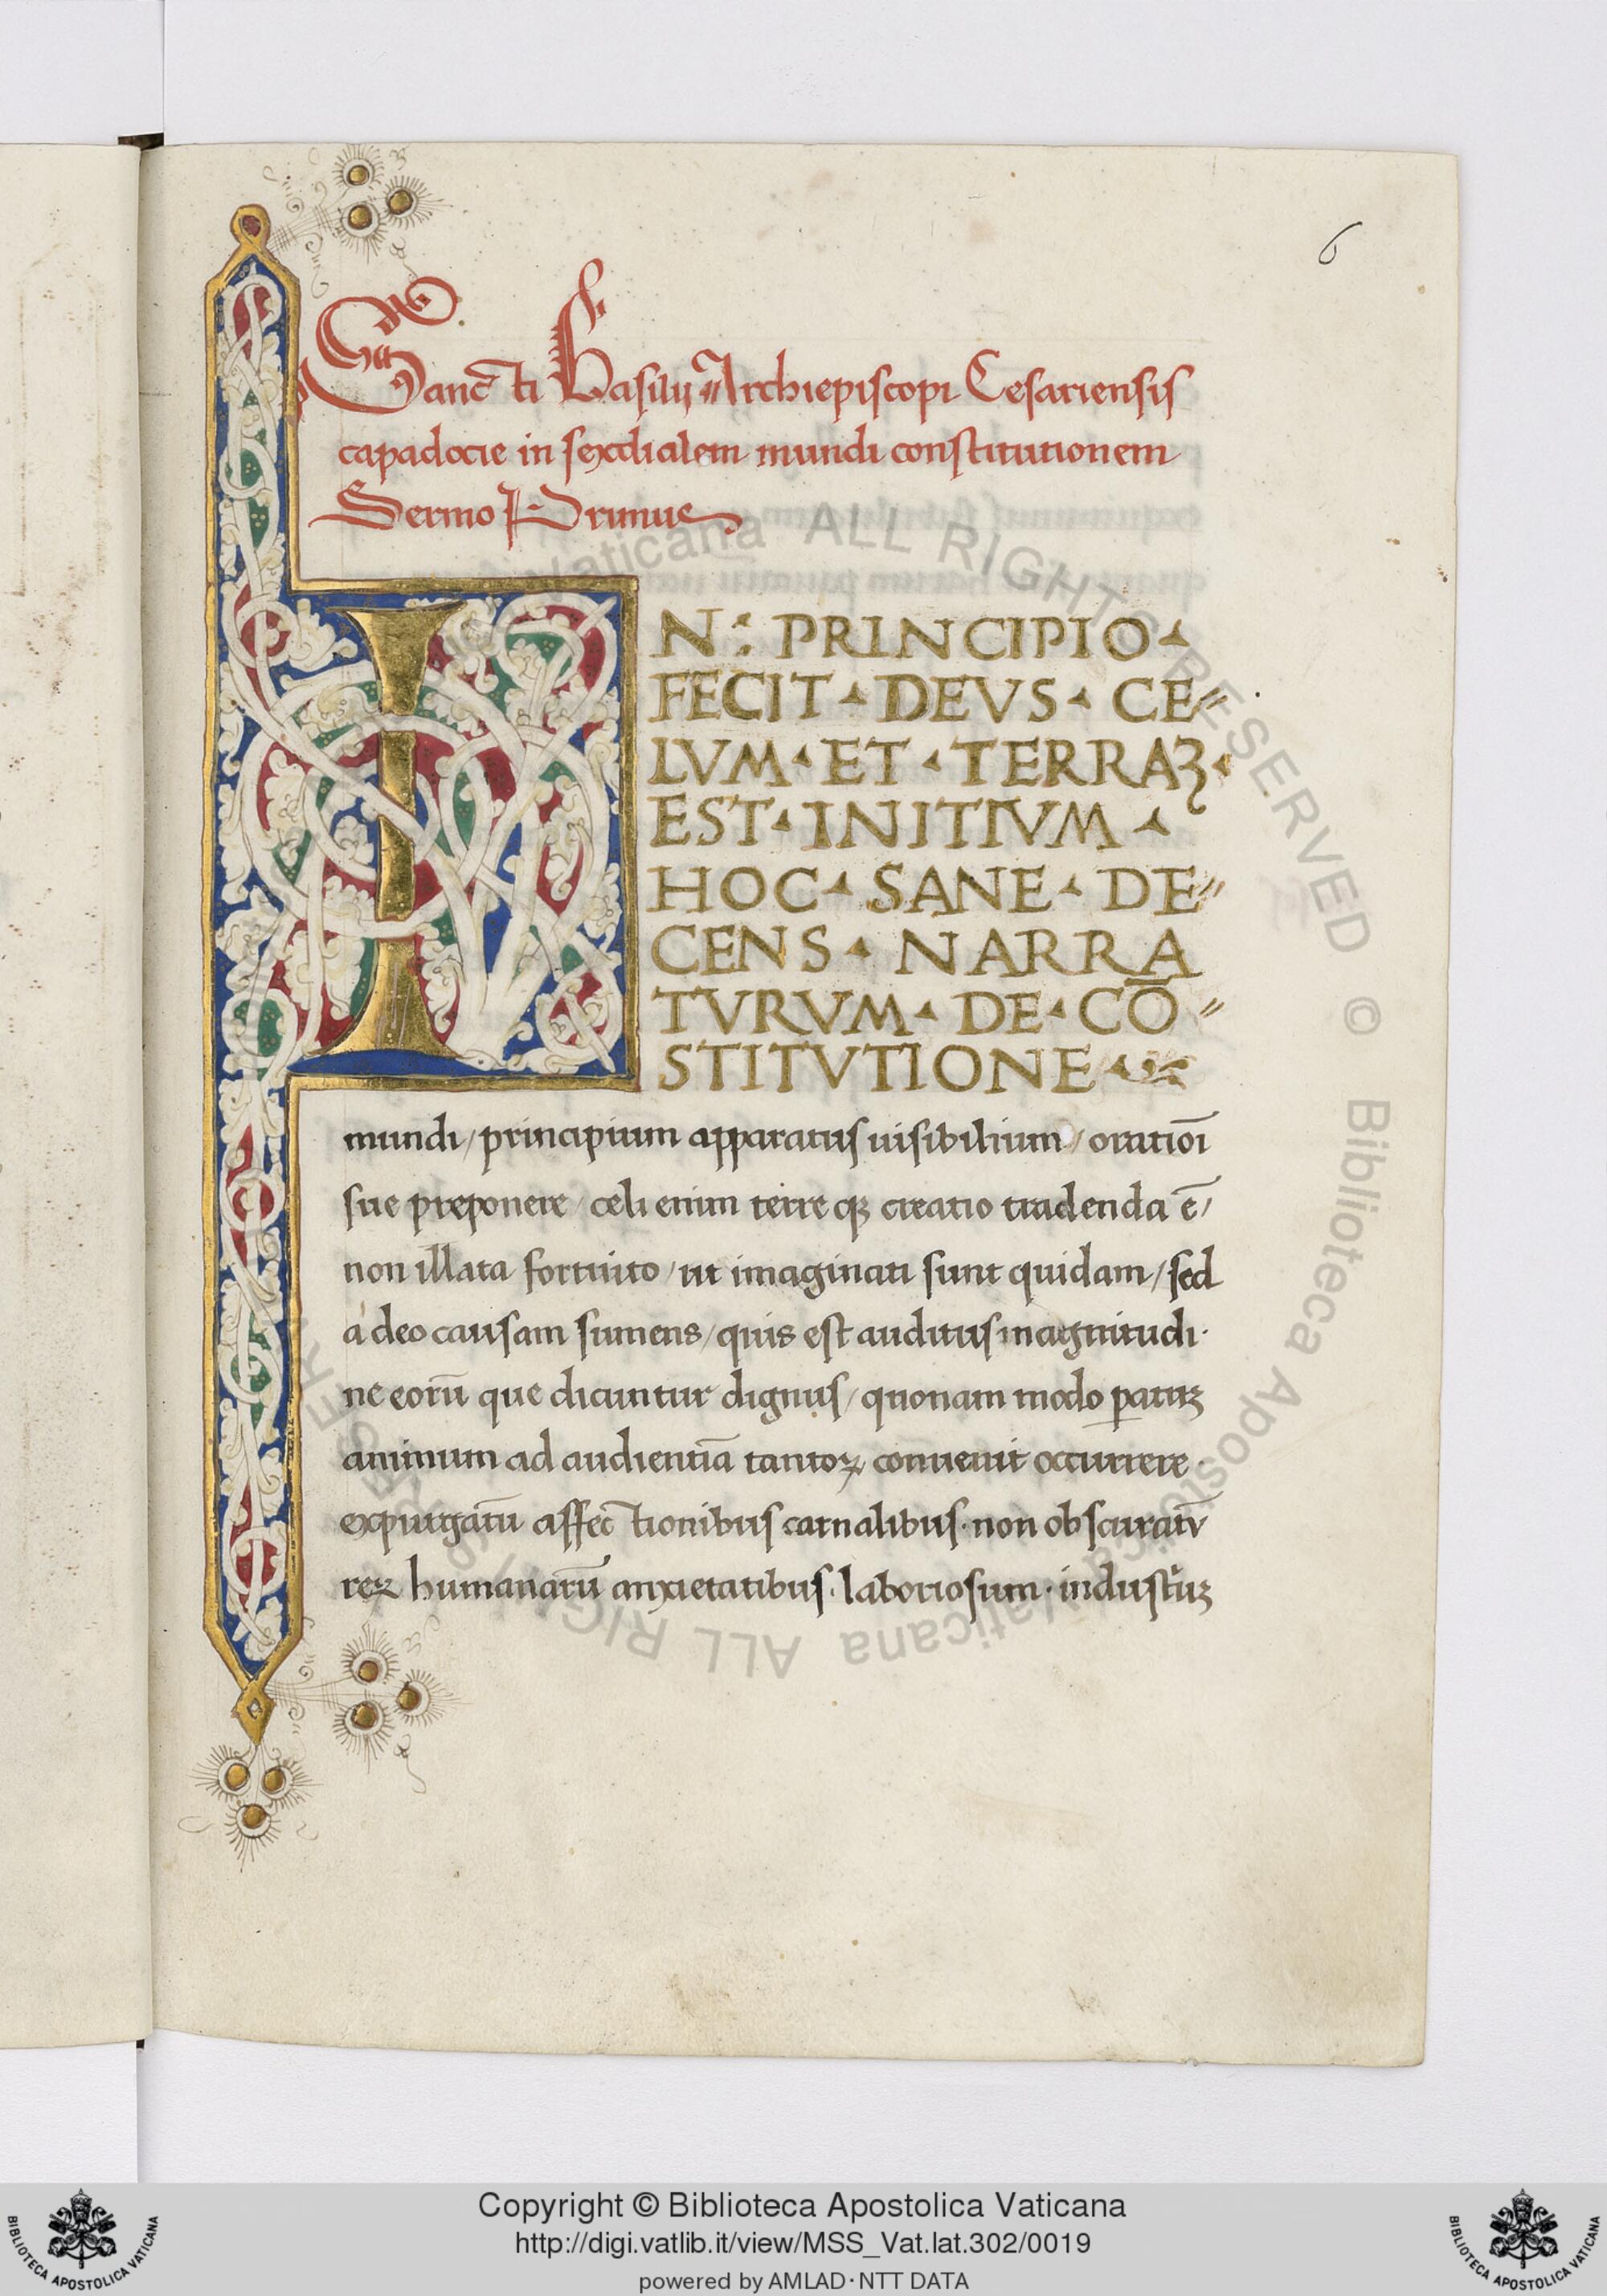 6
Sancti Basilij Archiepiscopi Cesariensis
capadocie in sexdialem mundi constitutionem
Sermo Primus
IN : PRINCIPIO
FECIT · DEVS · CE〃
LVM · ET · TERRAꝫ ·
EST · INITIVM ·
HOC · SANE · DE〃
CENS · NARRA
TVRVM · DE · CŌ〃
STITVTIONE ·
mundi / principium apparatus uisibilium / orationi
sue preponere / celi enim terre qꝫ creatio tradenda ē /
non illata fortuito / ut imaginati sunt quidam / sed
à deo causam sumens / quis est auditus magnitudi·
ne eorū que dicuntur dignus / quonam modo ꝑatuꝫ
animum ad audientiā tantoꝝ conuenit occurrere ·
expurgatū affectionibus carnalibus · non obscuratū
reꝝ humanarū anxietatibus · laboriosum ·
Copyright © Biblioteca Apostolica Vaticana
http://digi.vatlib.it/view/MSS_Vat.lat.302/0019
powered by AMLAD·NTT DATA
BIBLIOTECA APOSTOLICA VATICANA
BIBLIOTECA APOSTOLICA VATICANA
Vaticana ALL RIGHTS RESERVED © Biblioteca Apostolica Vaticana ALL RIGHTS RESERVED